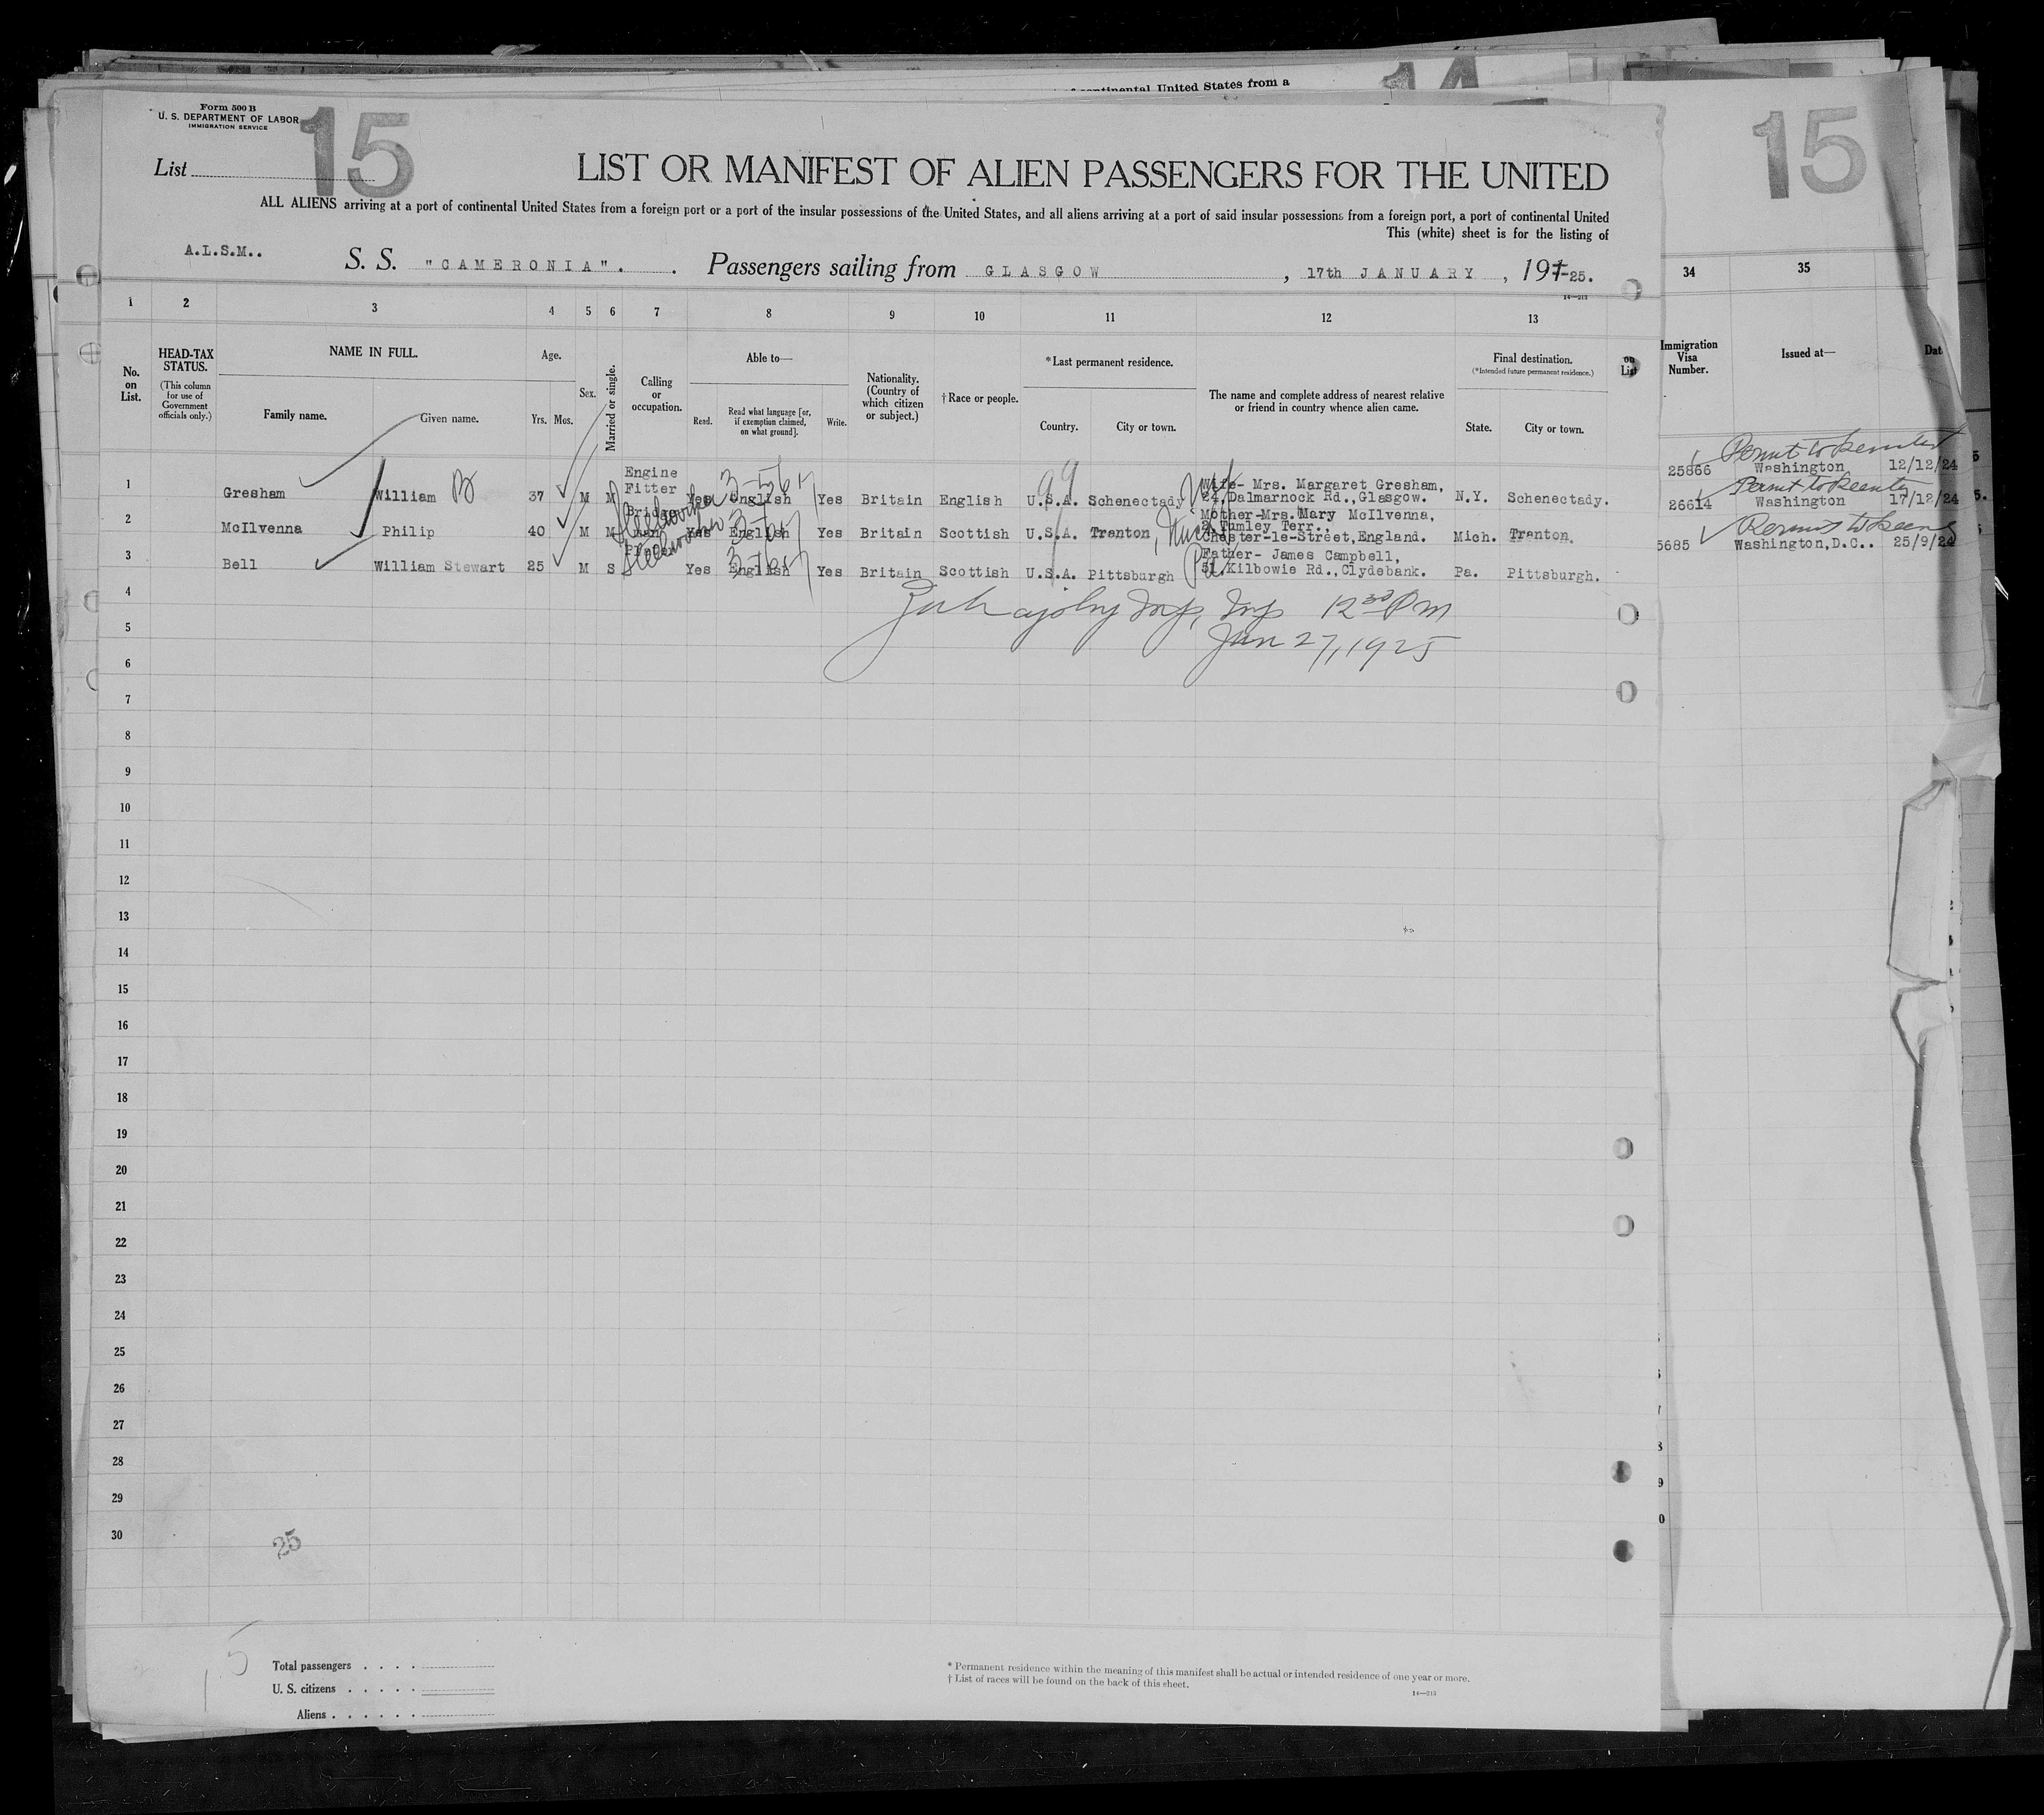 of continental United States from a
14
Form 500 B
U. S. DEPARTMENT OF LABOR
IMMIGRATION SERVICE
List 15
15
LIST OR MANIFEST OF ALIEN PASSENGERS FOR THE UNITED
ALL ALIENS arriving at a port of continental United States from a foreign port or a port of the insular possessions of the United States, and all aliens arriving at a port of said insular possessions from a foreign port, a port of continental United
This (white) sheet is for the listing of
A.L.S.M..
S. S. "CAMERONIA". Passengers sailing from GLASGOW, 17th JANUARY, 1925.
14—213
1 2 3 4 5 6 7 8 9 10 11 12 13 34 35
No. on List.
HEAD-TAX STATUS.
(This column for use of Government officials only.)
NAME IN FULL.
Family name. Given name.
Age.
Yrs. Mos.
Sex.
Married or single.
Calling or occupation.
Able to—
Read. Read what language [or, if exemption claimed, on what ground]. Write.
Nationality. (Country of which citizen or subject.)
† Race or people.
*Last permanent residence.
Country. City or town.
The name and complete address of nearest relative or friend in country whence alien came.
Final destination.
(*Intended future permanent residence.)
State. City or town.
on List
Immigration Visa Number.
Issued at—
Dat
1 Gresham William B 37 M M Engine Fitter Yes English Yes Britain English U.S.A. Schenectady Wife- Mrs. Margaret Gresham, 24, Dalmarnock Rd., Glasgow. N.Y. Schenectady. 25866 Permit to Reenter Washington 12/12/24
2 McIlvenna Philip 40 M M Steelworker Yes English Yes Britain Scottish U.S.A. Trenton, Mich Mother-Mrs. Mary McIlvenna, Terr., Chester-le-Street, England. Mich. Trenton. 26614 Permit to Reenter Washington 17/12/24
3 Bell William Stewart 25 M S Steelworker Yes English Yes Britain Scottish U.S.A. Pittsburgh Pa Father- James Campbell, 51, Kilbowie Rd., Clydebank. Pa. Pittsburgh. 5685 Permit to Reenter Washington, D.C.. 25/9/24
4
12 30 PM
5
Jan 27, 1925
6
7
8
9
10
11
12
13
14
15
16
17
18
19
20
21
22
23
24
25
26
27
28
29
30
25
15
Total passengers . . . .
U. S. citizens . . . . .
Aliens . . . . . .
* Permanent residence within the meaning of this manifest shall be actual or intended residence of one year or more.
† List of races will be found on the back of this sheet.
14—213